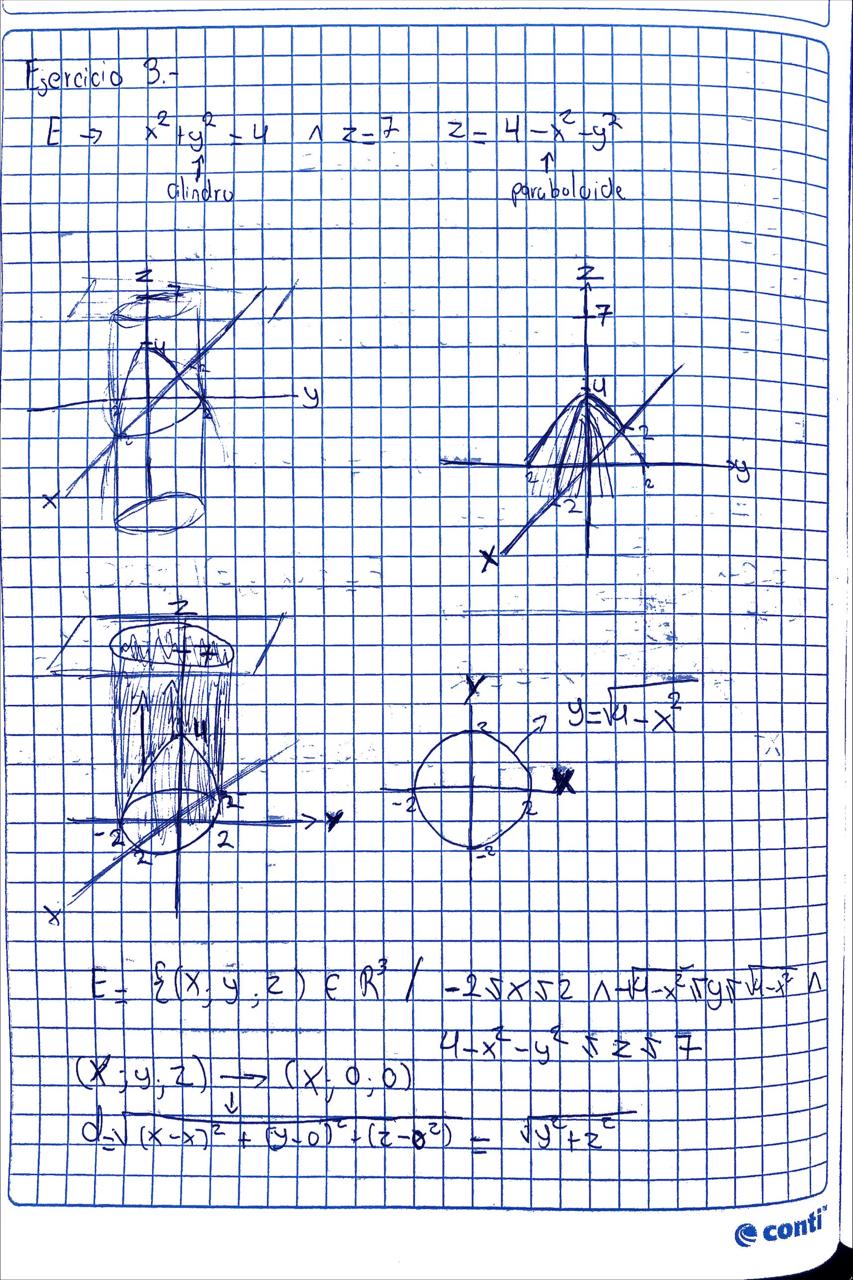 Ejercicio 3.-
E → x² + y² = 4 ∧ z = 7 z = 4 - x² - y²
↑ ↑
cilindro paraboloide
z
4
2
y
2 2
2
x
z
7
4
2
2 2 y
2
x
z
7
4
2
-2 2 y
2
x
y
2 y = √4 - x²
-2 2 x
-2
E = {(x; y; z) ∈ R³ / -2 ≤ x ≤ 2 ∧ -√4-x² ≤ y ≤ √4-x² ∧
4 - x² - y² ≤ z ≤ 7
(x; y; z) → (x; 0; 0)
↓
d = √(x-x)² + (y-0)² + (z-0²) = √y² + z²
conti